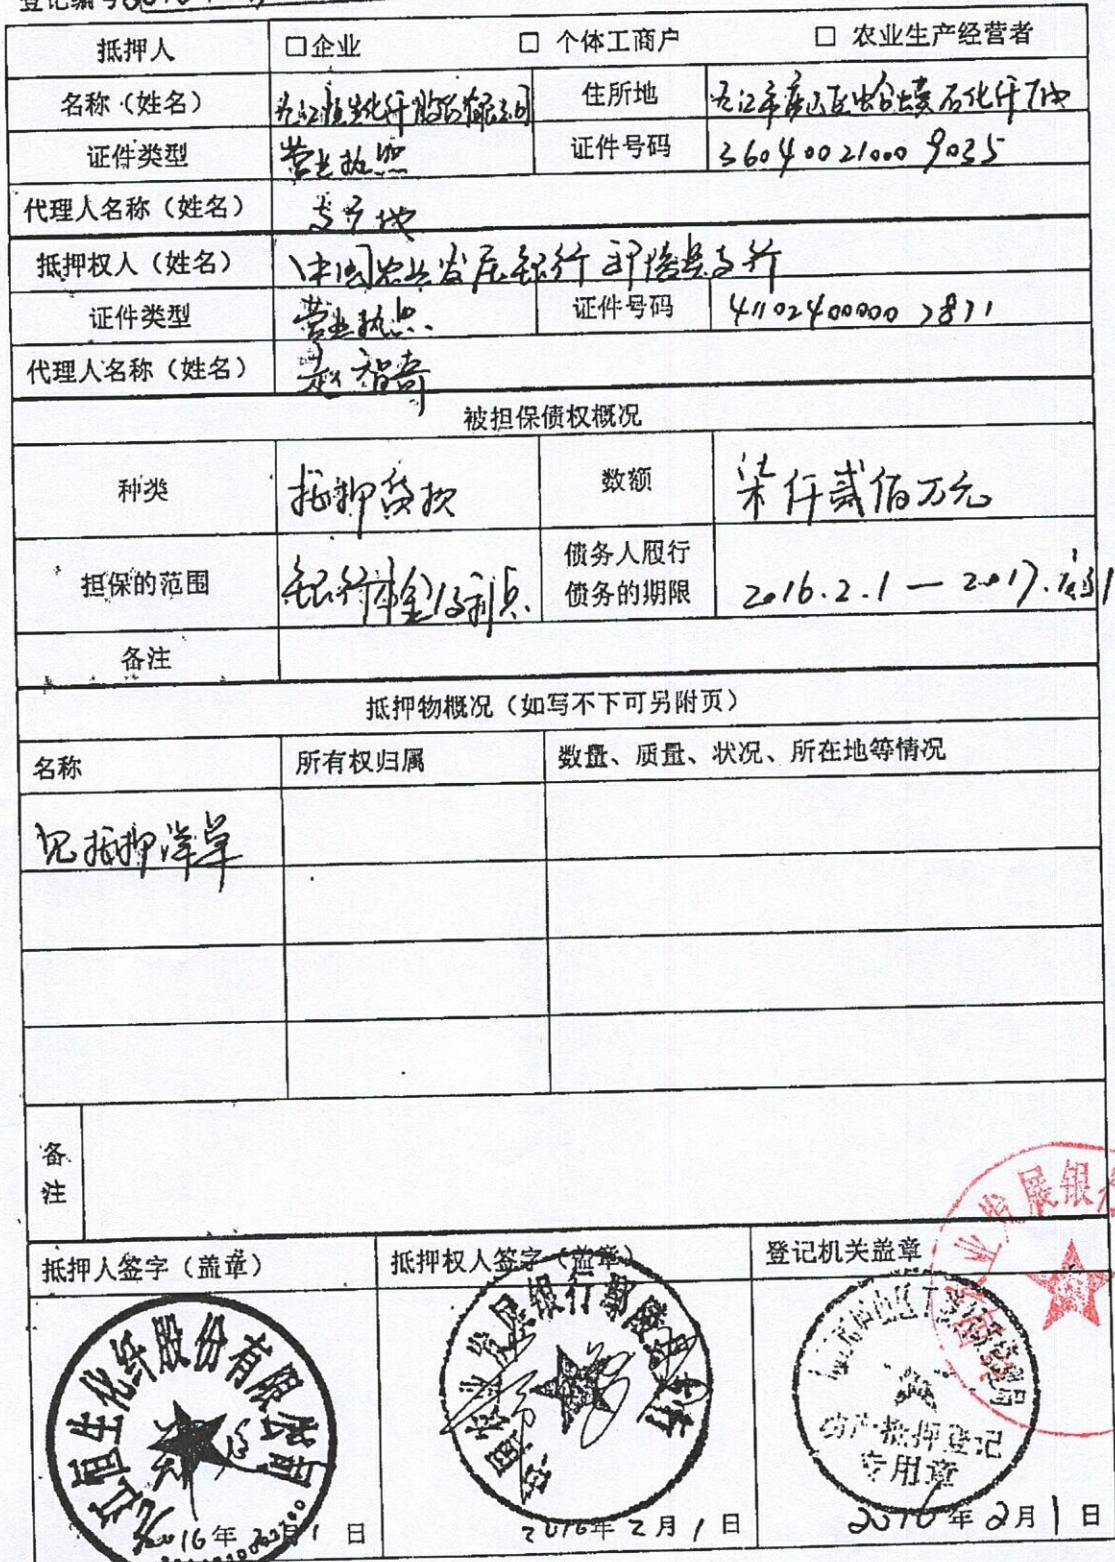 登记编号
抵押人 □企业 □ 个体工商户 □ 农业生产经营者
名称（姓名） 九江恒生化纤股份有限公司 住所地 九江市庐山区蛤蟆石化纤厂内
证件类型 营业执照 证件号码 360400210009035
代理人名称（姓名）
抵押权人（姓名） 中国农业发展银行鄢陵县支行
证件类型 营业执照 证件号码 411024000007871
代理人名称（姓名） 赵智奇
被担保债权概况
种类 抵押贷款 数额 柒仟贰佰万元
担保的范围 银行本金及利息 债务人履行
债务的期限 2016.2.1 — 2017.1.31
备注
抵押物概况（如写不下可另附页）
名称 所有权归属 数量、质量、状况、所在地等情况
见抵押清单
备
注
抵押人签字（盖章） 抵押权人签字（盖章） 登记机关盖章
九江恒生化纤股份有限公司
中国农业发展银行鄢陵县支行
动产抵押登记
专用章
业发展银
2016年 月1日 2016年2月1日 2016年2月1日